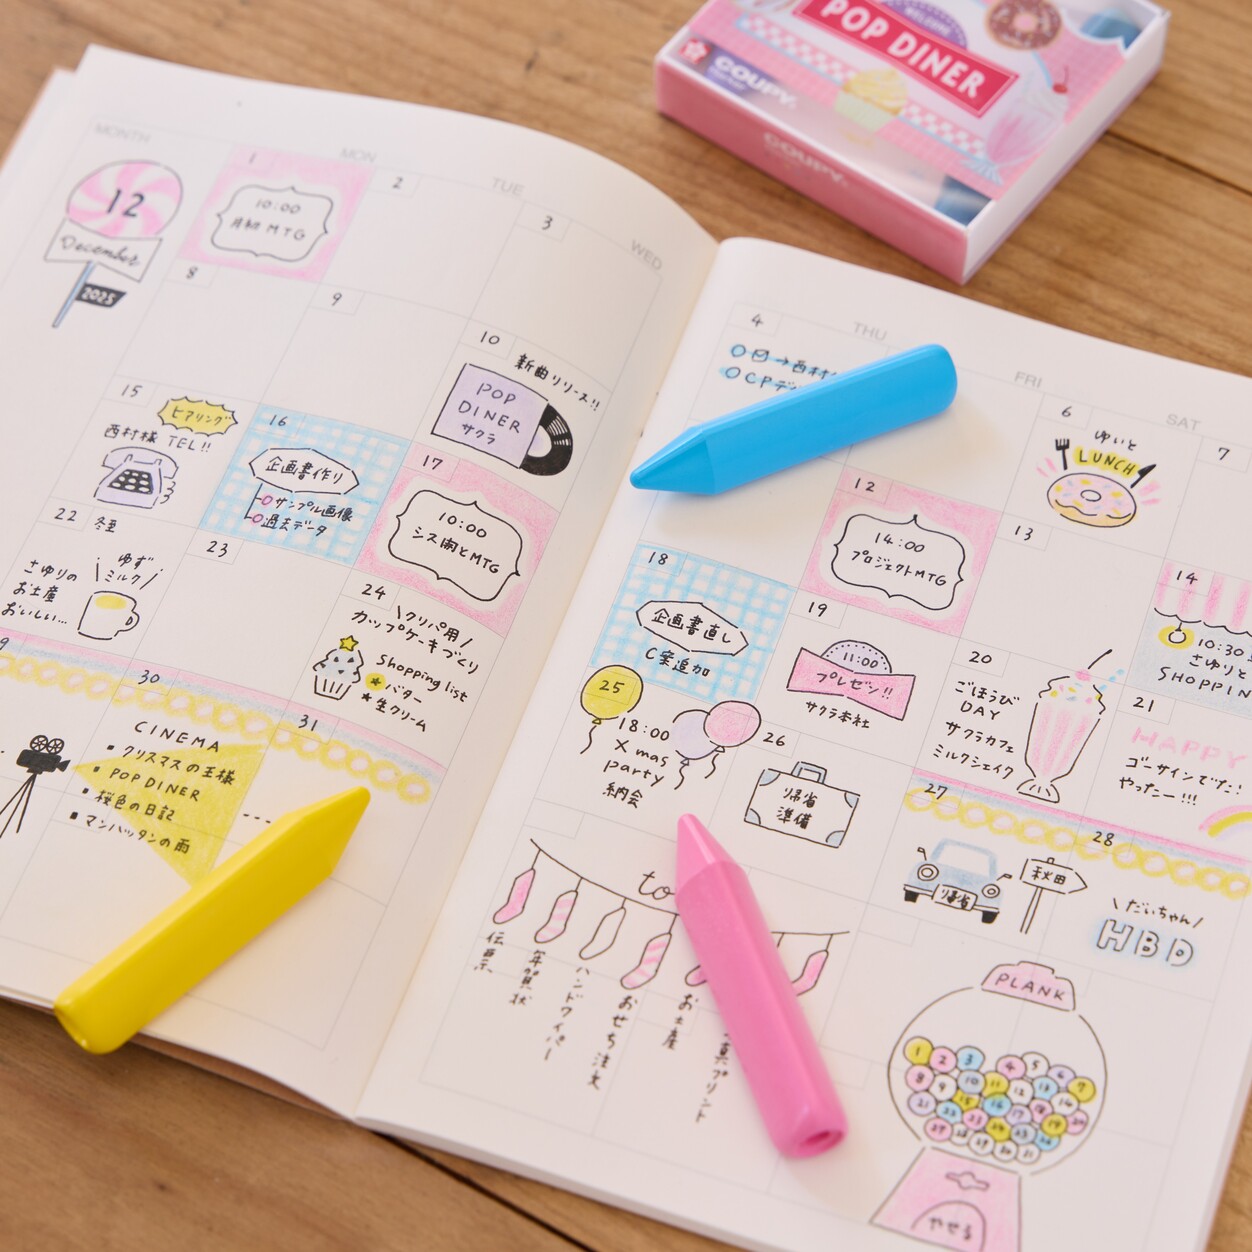 POP DINER
COUPY
COUPY
MONTH
MON
TUE
WED
12
December
2025
1
10:00
月初MTG
2
3
8
9
10
新曲リリース!!
POP
DINER
サクラ
15
ヒアリング
西村様 TEL!!
16
企画書作り
サンプル画像
過去データ
17
10:00
シス開とMTG
22 冬至
ゆず
ミルク
さゆりの
お土産
おいしい…
23
24
\クリパ用/
カップケーキづくり
Shopping list
バター
生クリーム
30
CINEMA
クリスマスの王様
POP DINER
桜色の日記
マンハッタンの雨
31
THU
FRI
SAT
4
→西村
CPデ
6
ゆいと
LUNCH
7
12
14:00
プロジェクトMTG
13
14
10:30
さゆりと
SHOPPIN
18
企画書直し
C案追加
19
11:00
プレゼン!!
サクラ本社
20
ごほうび
DAY
サクラカフェ
ミルクシェイク
21
HAPPY
ゴーサインでた!
やったー!!!
25
18:00
X mas
party
納会
26
帰省
準備
27
帰省
秋田
28
\だいちゃん/
HBD
to
年賀状
ハンドワイパー
おせち注文
お土産
真プリント
PLANK
1 2 3 4 5 6 7
8 9 10 11 12 13 14
15 16 17 18 19 20
21 22 23 24 25 26
やせる